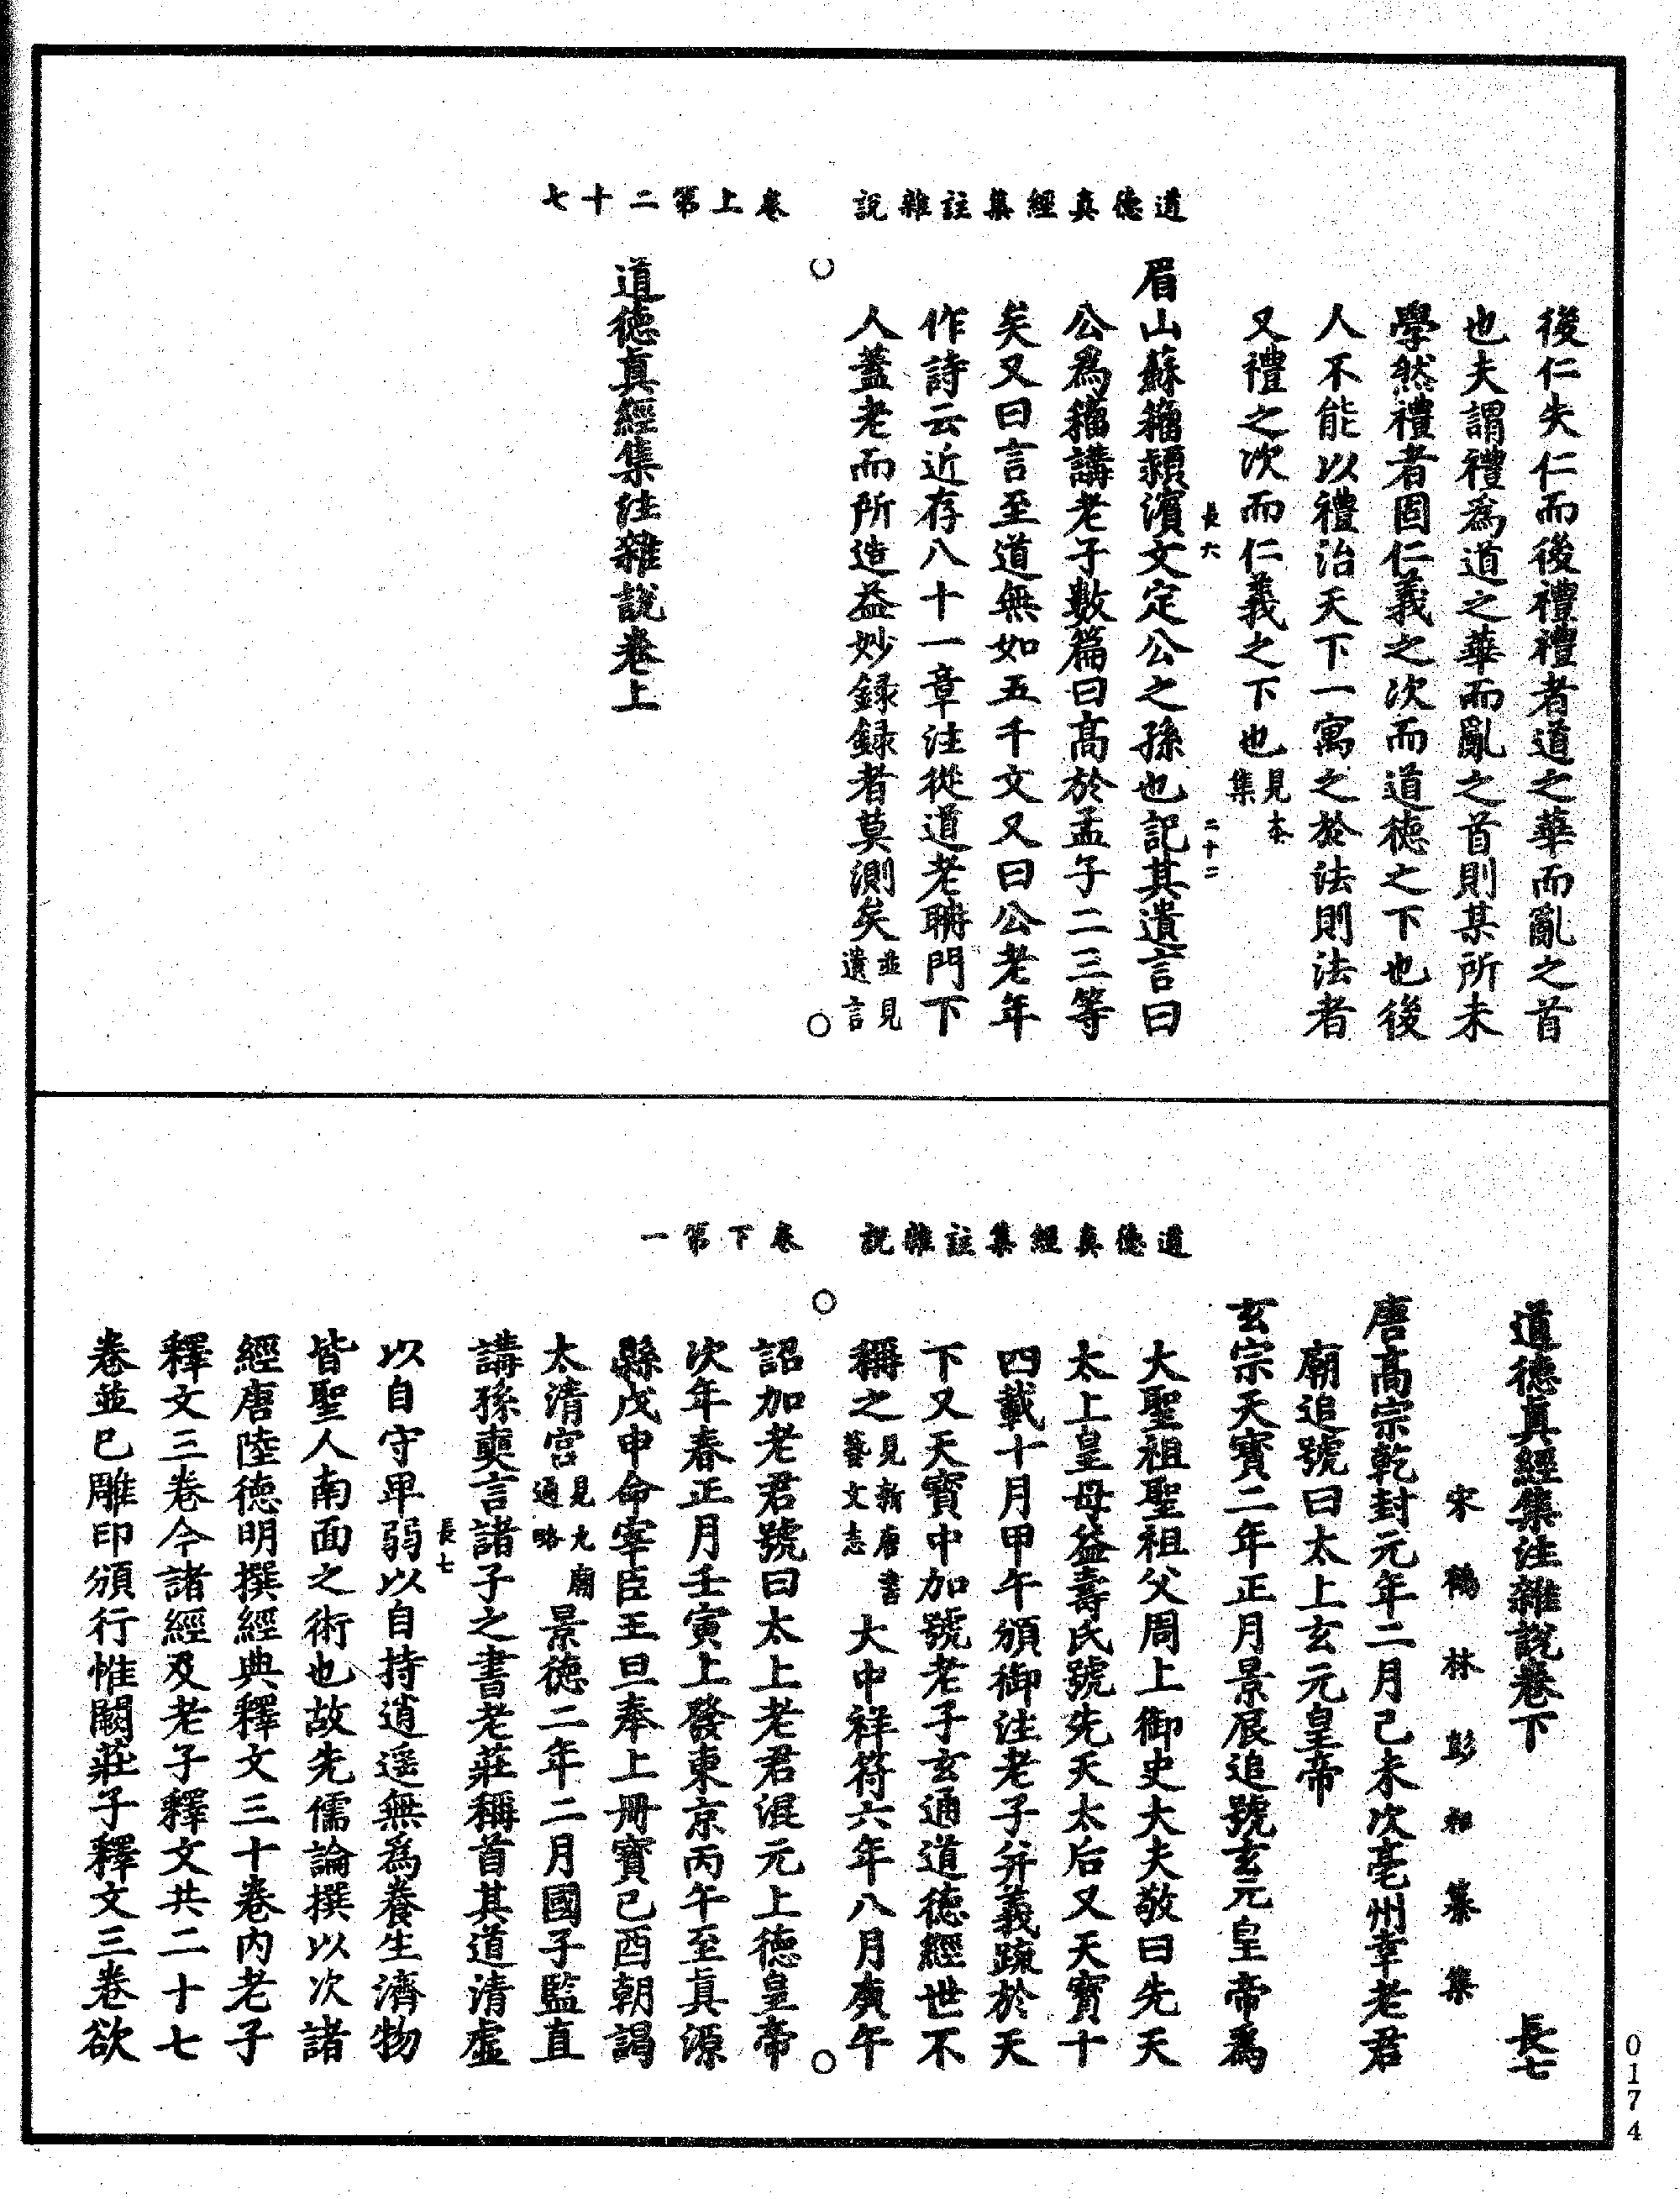 道德真經集註雜說　卷上第二十七
後仁失仁而後禮禮者道之華而亂之首
也夫謂禮爲道之華而亂之首則某所未
學然禮者固仁義之次而道德之下也後
人不能以禮治天下一寓之於法則法者
又禮之次而仁義之下也見本集
長六
二十二
眉山蘇籀潁濱文定公之孫也記其遺言曰
公爲籀講老子數篇曰高於孟子二三等
矣又曰言至道無如五千文又曰公老年
作詩云近存八十一章注從道老聃門下
人蓋老而所造益妙録録者莫測矣並見遺言
道德真經集注雜說卷上
道德真經集註雜說　卷下第一
道德真經集注雜說卷下　長七
宋鶴林彭耜纂集
唐高宗乾封元年二月己未次亳州幸老君
廟追號曰太上玄元皇帝
玄宗天寶二年正月景辰追號玄元皇帝爲
大聖祖聖祖父周上御史大夫敬曰先天
太上皇母益壽氏號先天太后又天寶十
四載十月甲午頒御注老子并義疏於天
下又天寶中加號老子玄通道德經世不
稱之見新唐書藝文志大中祥符六年八月庚午
詔加老君號曰太上老君混元上德皇帝
次年春正月壬寅上發東京丙午至真源
縣戊申命宰臣王旦奉上冊寶己酉朝謁
太清宮見九廟通略景德二年二月國子監直
講孫奭言諸子之書老莊稱首其道清虛
長七
以自守卑弱以自持逍遥無爲養生濟物
皆聖人南面之術也故先儒論撰以次諸
經唐陸德明撰經典釋文三十卷内老子
釋文三卷今諸經及老子釋文共二十七
卷並已雕印頒行惟闕莊子釋文三卷欲
0174